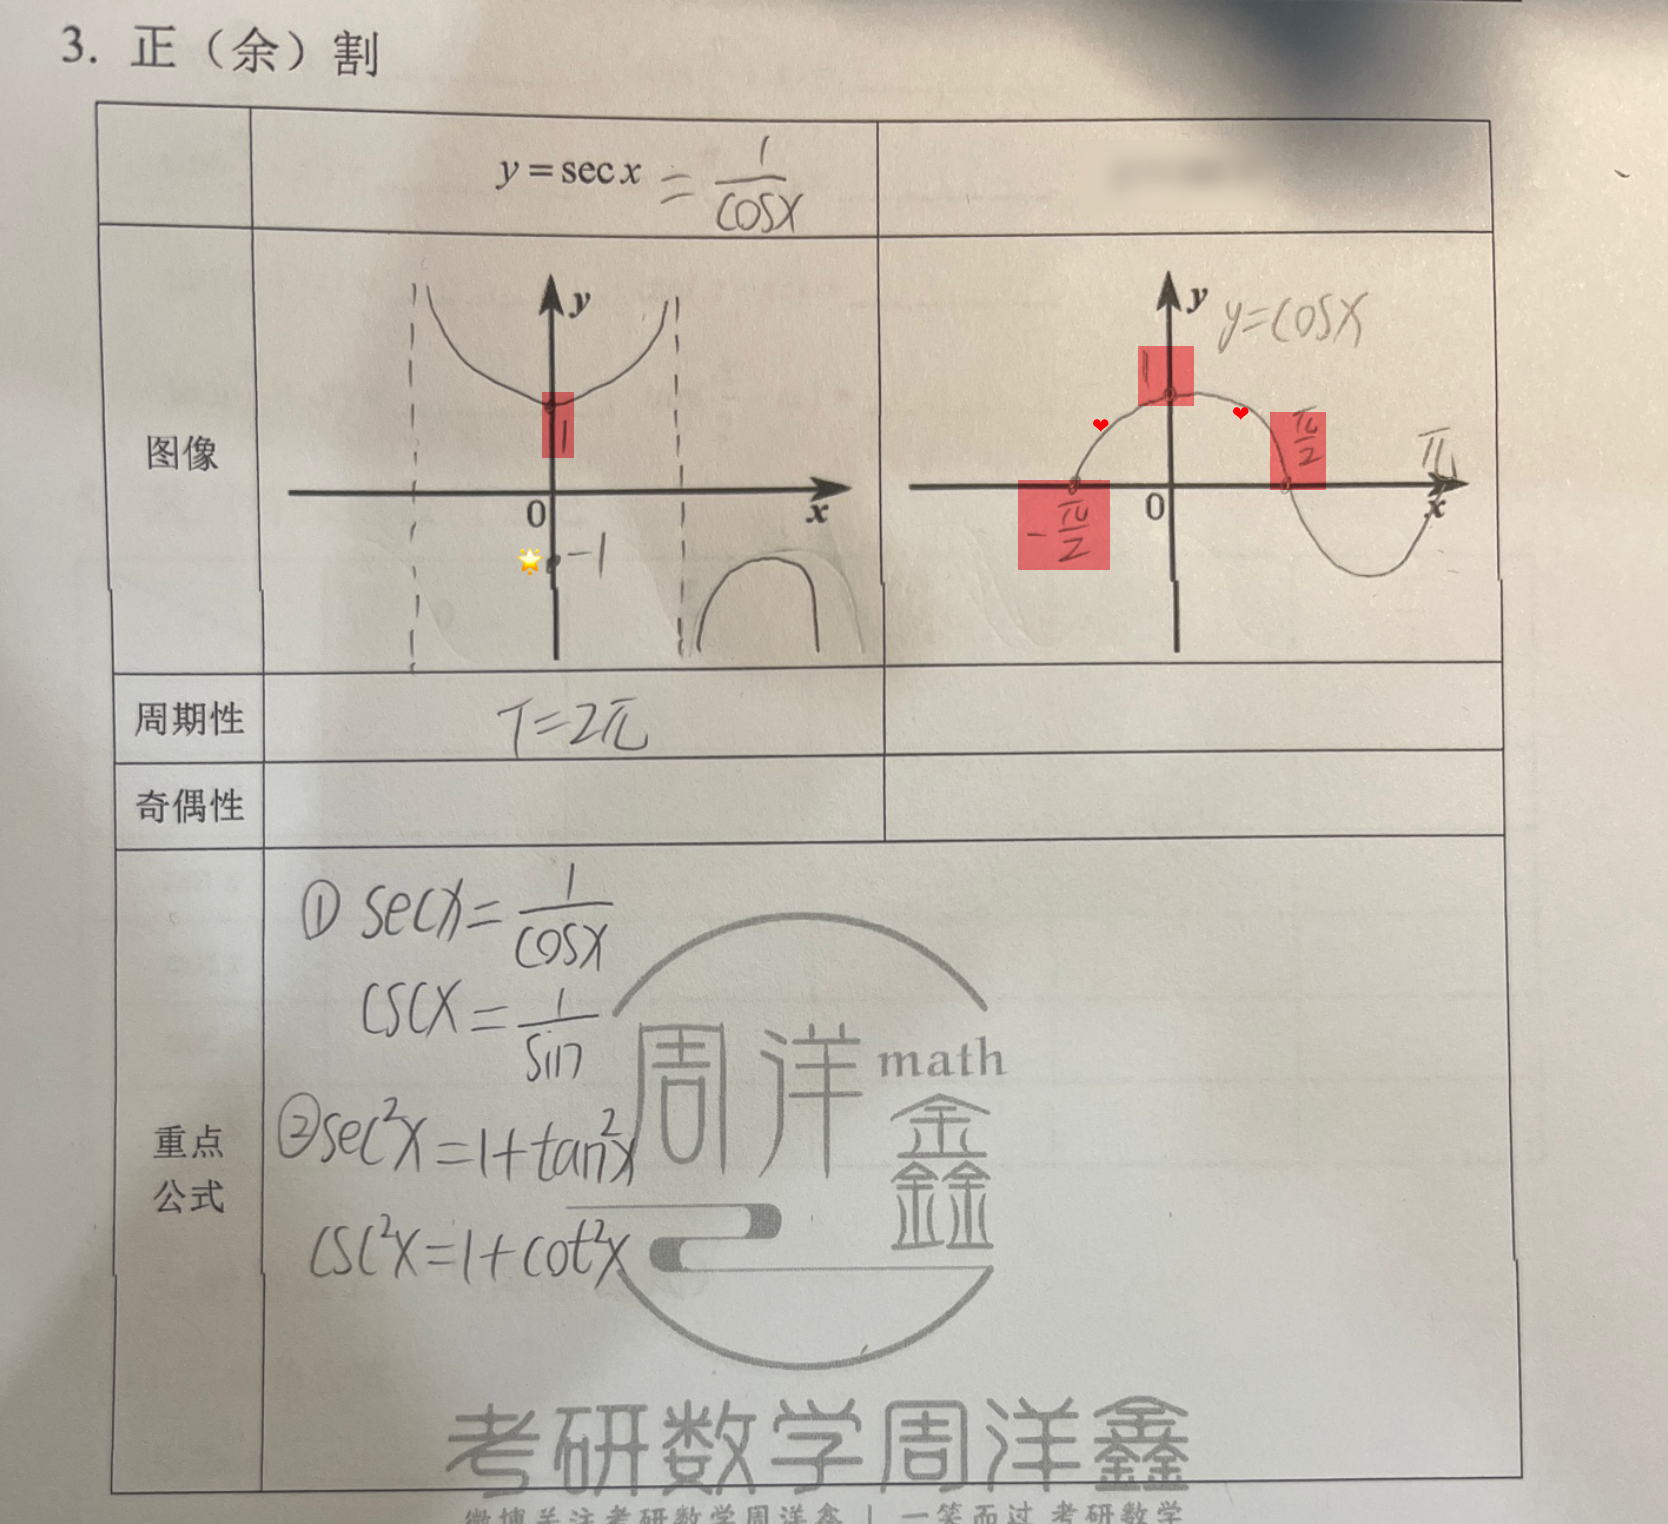 3. 正（余）割
y = sec x = 1/cosx
图像
y
1
0
x
-1
y
y=cosx
1
π/2
π
-π/2
0
x
周期性
T=2π
奇偶性
① secx = 1/cosx
cscx = 1/sin
② sec²x = 1+tan²x
csc²x = 1+cot²x
重点
公式
周洋 math
鑫
考研数学周洋鑫
微博关注考研数学周洋鑫 | 一笑而过 考研数学